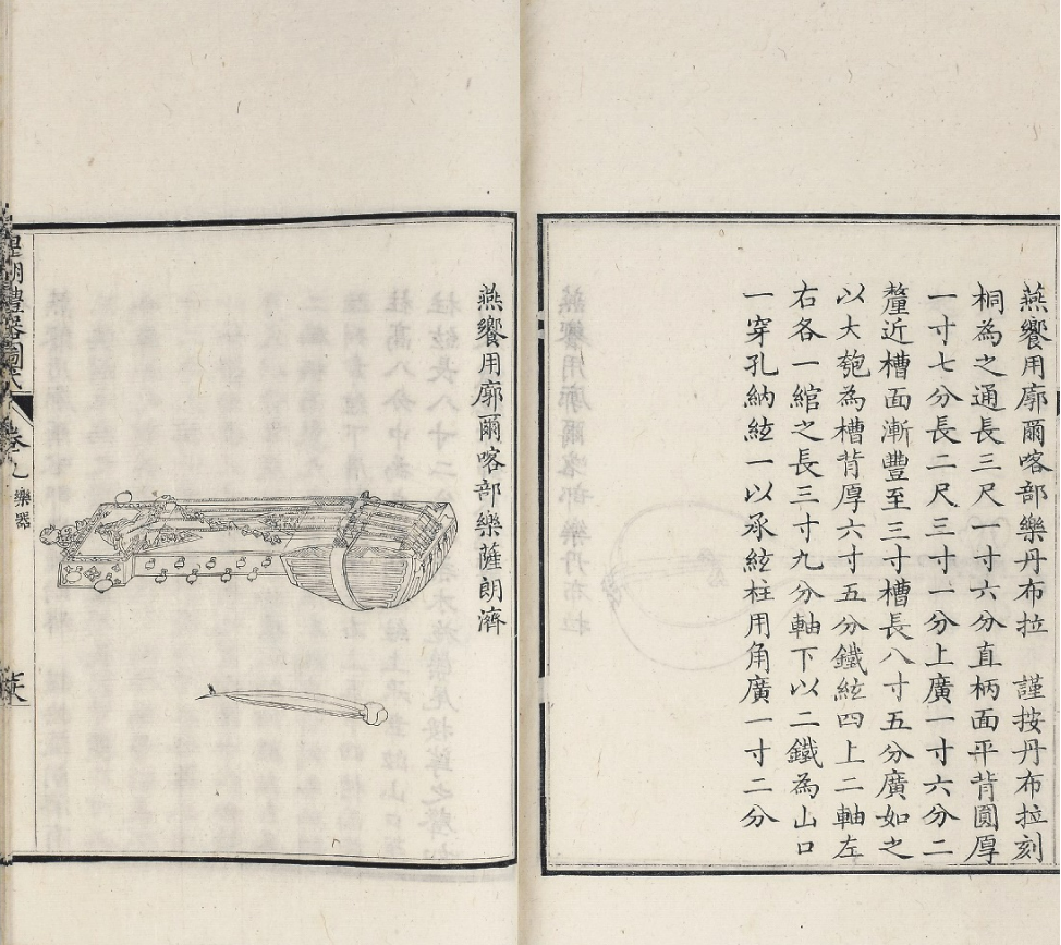 燕饗用廓爾喀部樂丹布拉　謹按丹布拉刻
桐為之通長三尺一寸六分直柄面平背圓厚
一寸七分長二尺三寸一分上廣一寸六分二
釐近槽面漸豐至三寸槽長八寸五分廣如之
以大匏為槽背厚六寸五分鐵絃四上二軸左
右各一綰之長三寸九分軸下以二鐵為山口
一穿孔納絃一以承絃柱用角廣一寸二分
燕饗用廓爾喀部樂薩朗濟
皇朝禮器圖式
卷九
樂器